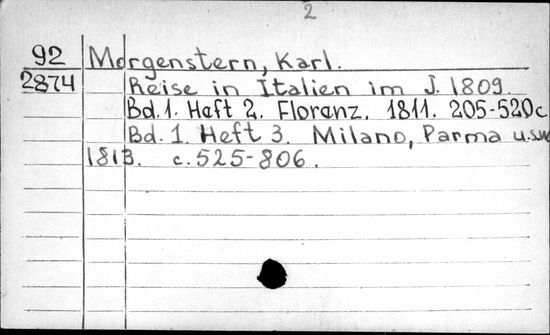 2
92 Morgenstern, Karl.
2874 Reise in Italien im J. 1809.
Bd. 1. Heft 2. Florenz. 1811. 205-520c
Bd. 1. Heft 3. Milano, Parma u.sw
1813. c. 525-806.